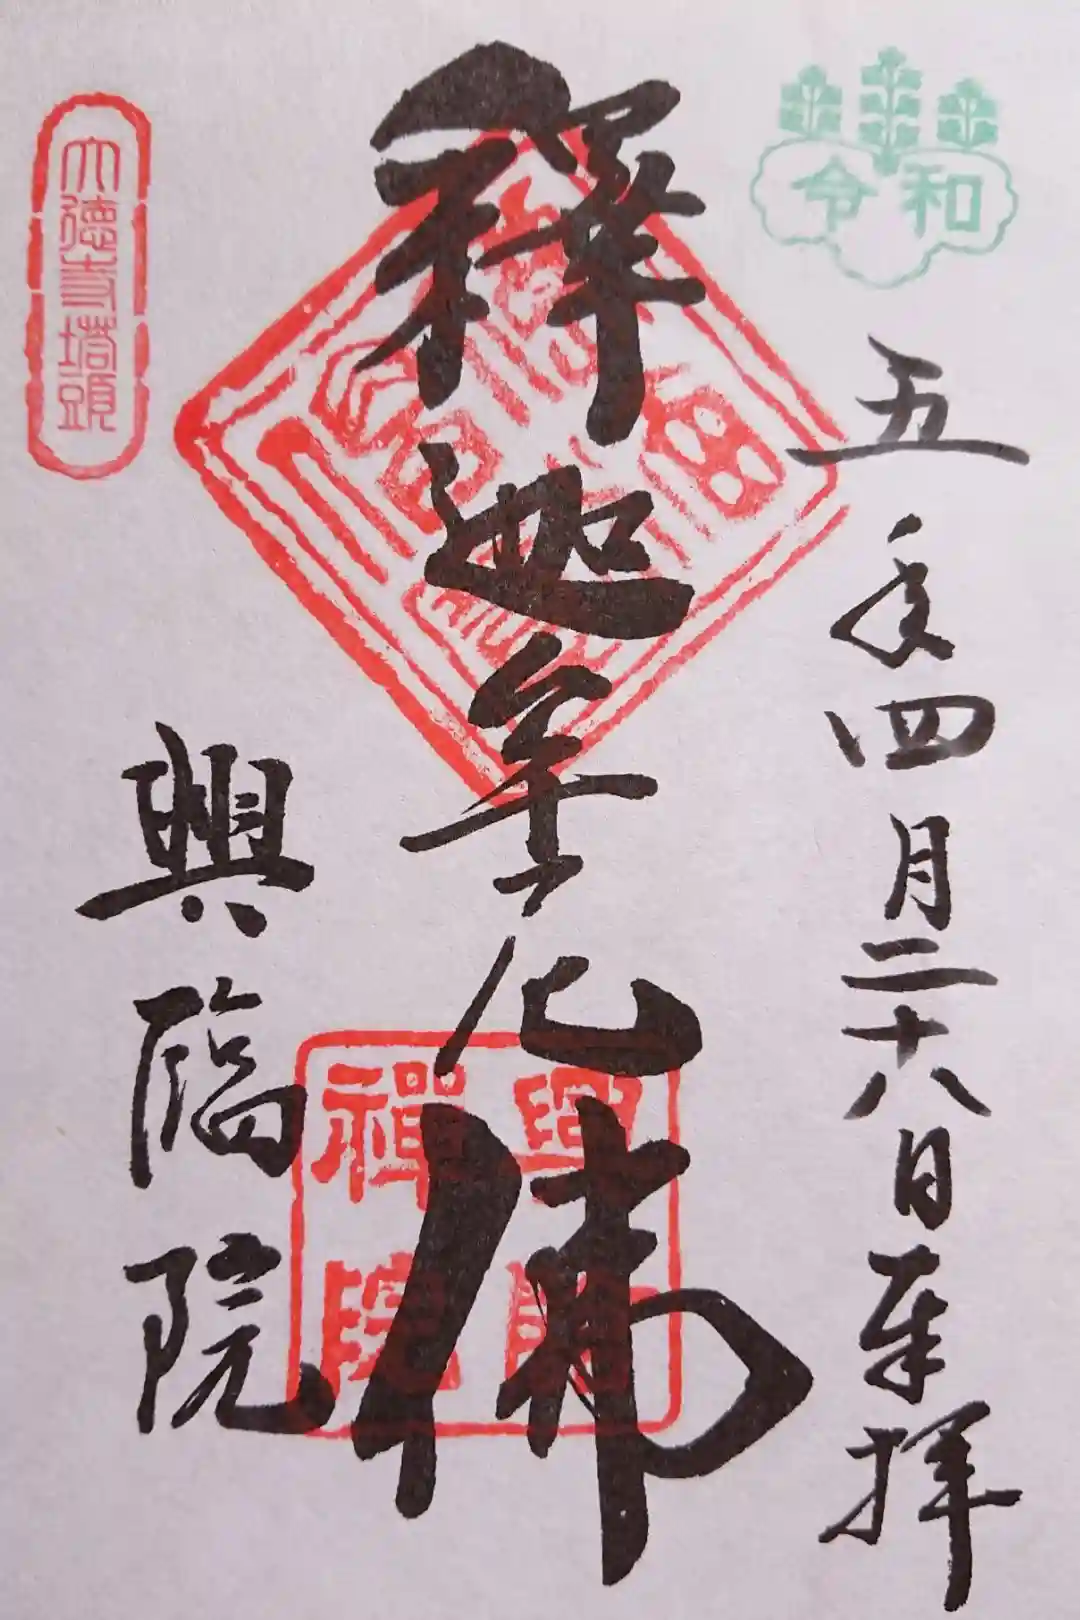 令和
五年四月二十八日奉拝
釋迦牟尼佛
興臨院
大徳寺塔頭
禅院